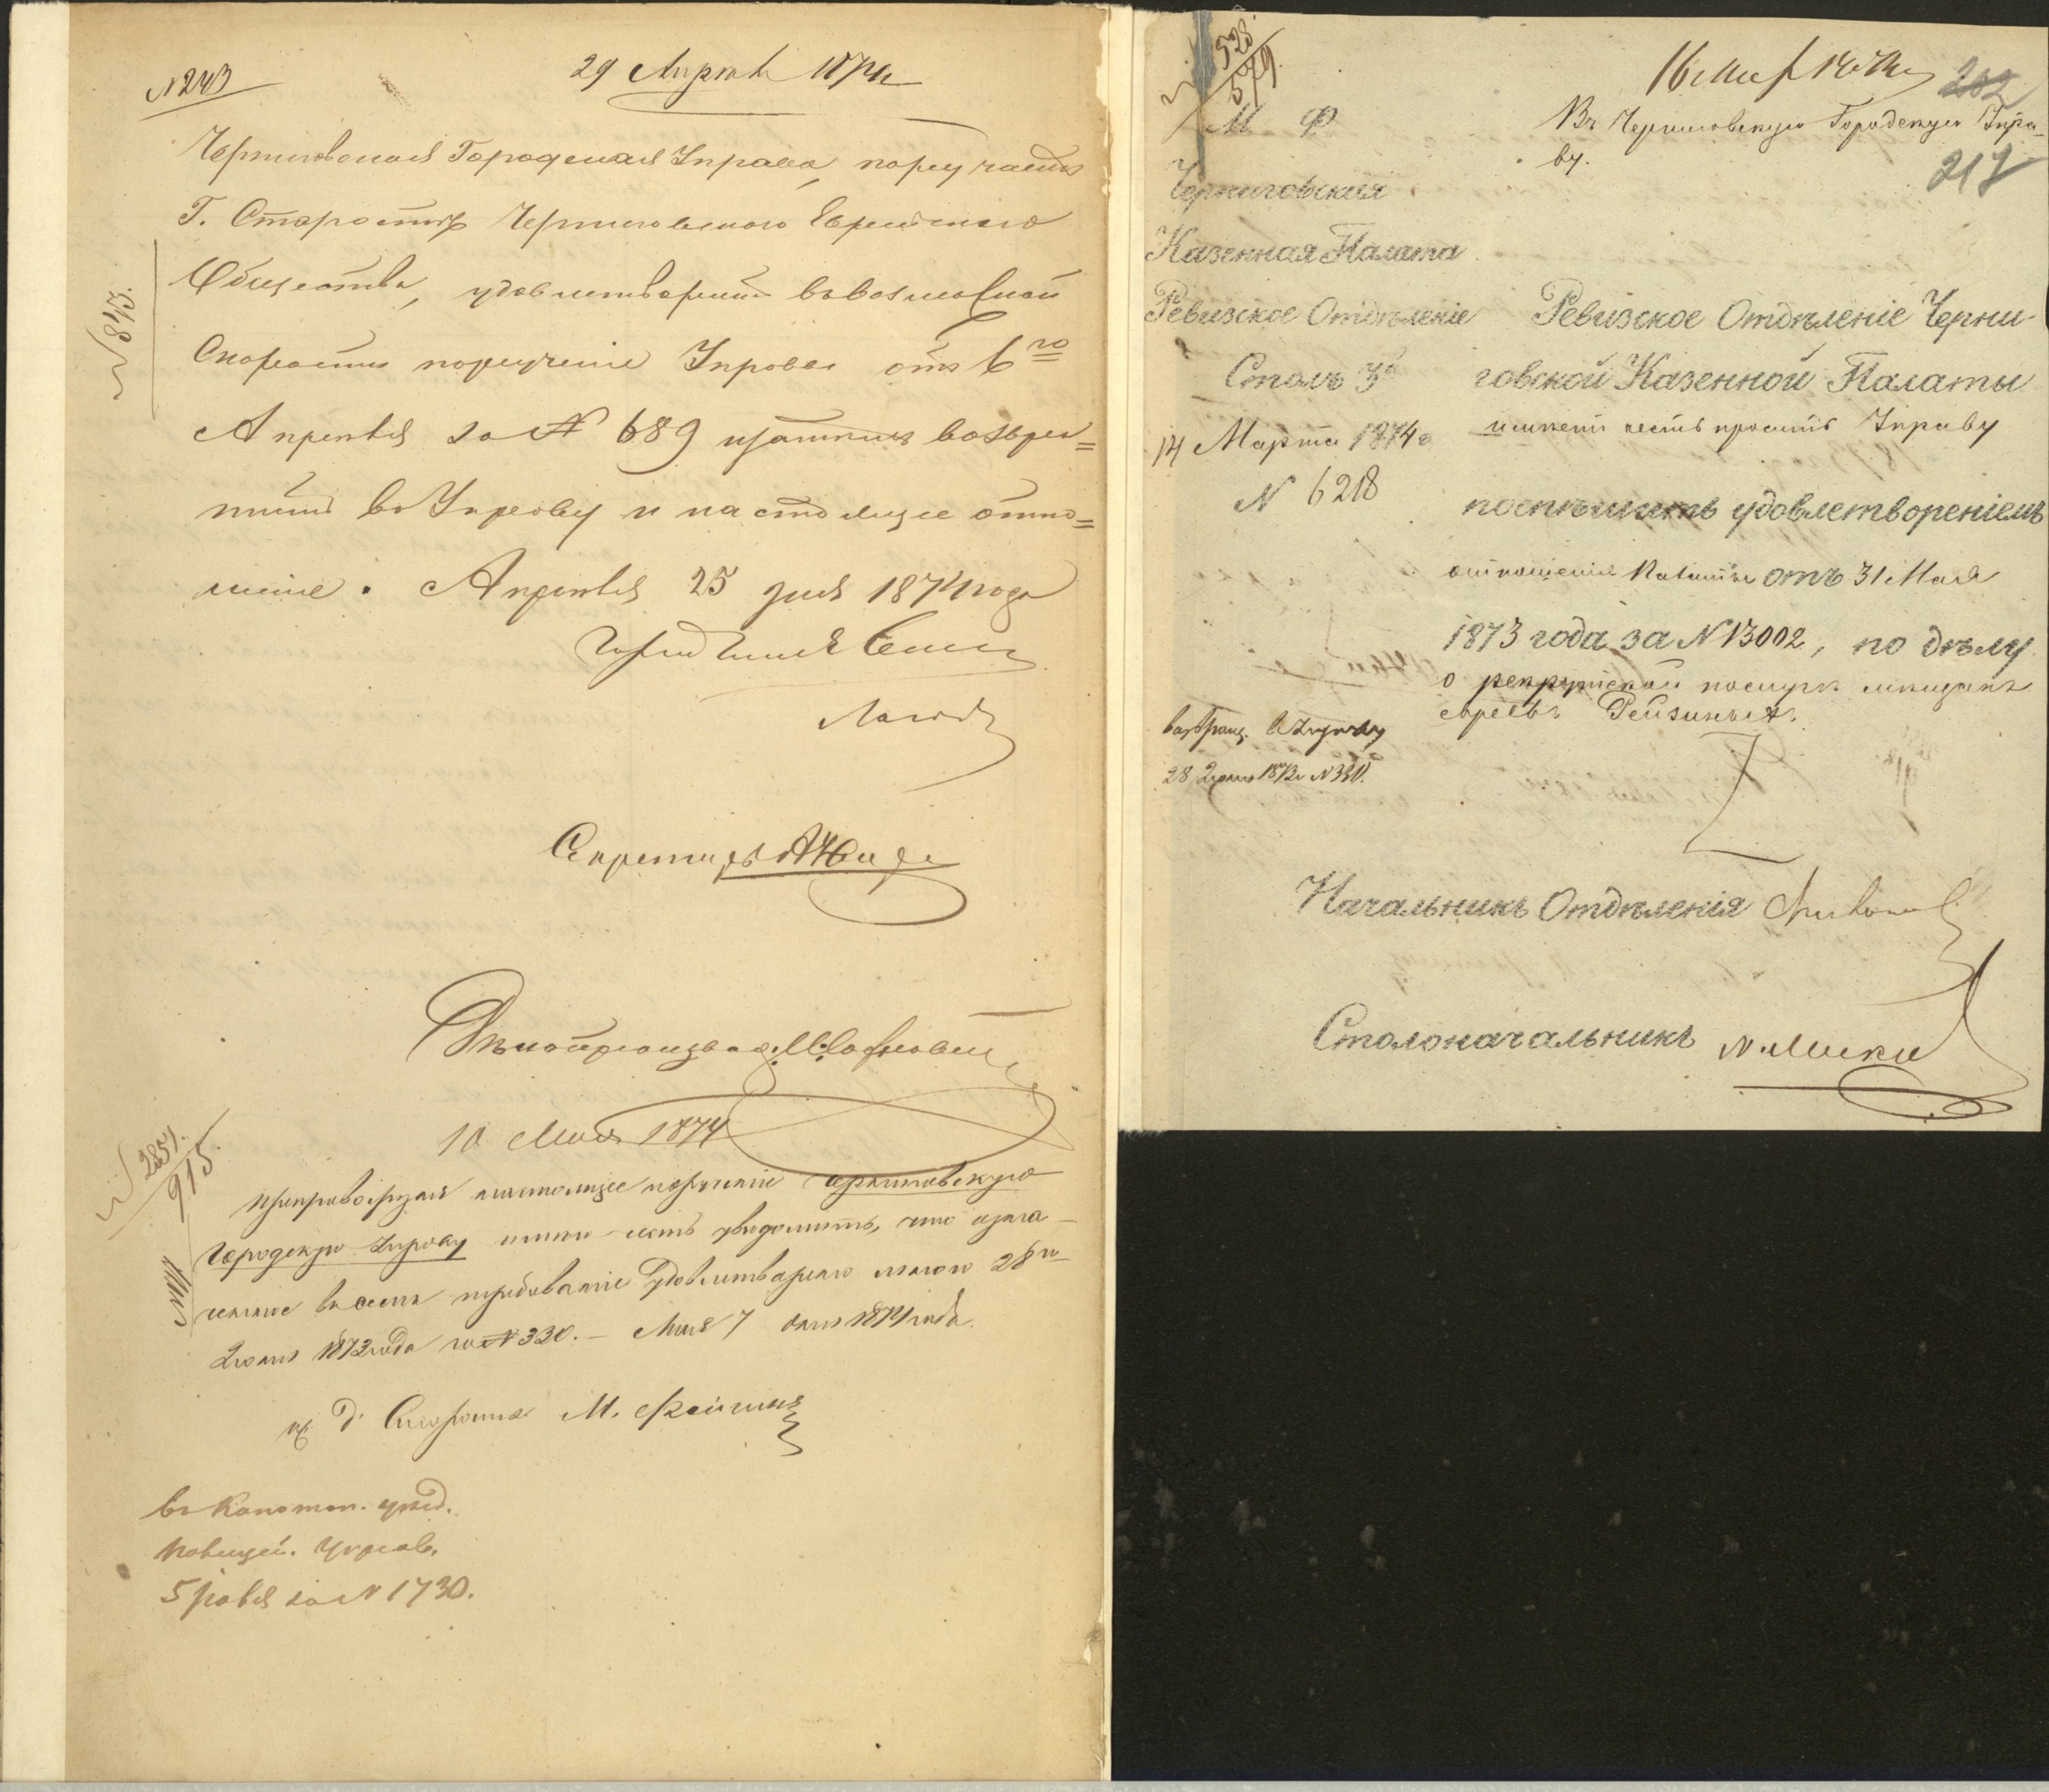 № 243
29 Апрѣля 1874
Черниговская Городская Управа, поручаетъ
Г. Старостѣ Черниговскаго Еврейскаго
Общества, удовлетворить въ возможной
№ 843.
скорости порученіе Управы отъ 6го
Апрѣля за № 689 возвра=
тить въ Управу и настоящее отно=
шеніе. Апрѣля 25 дня 1874 года
Секретарь
Дѣлопроизвод.
10 Мая 1874
№ 2851.
915.
Препровождая настоящее порученіе Черниговскую
Городскую Управу имѣю честь увѣдомить, что изло-
женное въ семъ требованіе удовлетворено мною 28го
Іюня 1873 года за № 330. – Мая 7 дня 1874 года.
И. д. Старосты М.
въ Конотоп. уѣзд.
Полицей. Управ.
5 Іюля за № 1730.
№ 528.
579.
16 Мар 1874
202
217
М. Ф.
Въ Черниговскую Городскую Упра-
ву.
Черниговская
Казенная Палата
Ревизское Отдѣленіе
Столъ 3й
14 Марта 1874 г.
№ 6218
Ревизское Отдѣленіе Черни-
говской Казенной Палаты
имѣетъ честь просить Управу
поспѣшить удовлетвореніемъ
отношенія Палаты отъ 31 Мая
1873 года за № 13002, по дѣлу
о рекрутской послугѣ мѣщанъ
евреевъ Рейзиныхъ.
возвращ. въ Управу
28 Іюня 1873 г. № 330.
Начальникъ Отдѣленія
Столоначальникъ